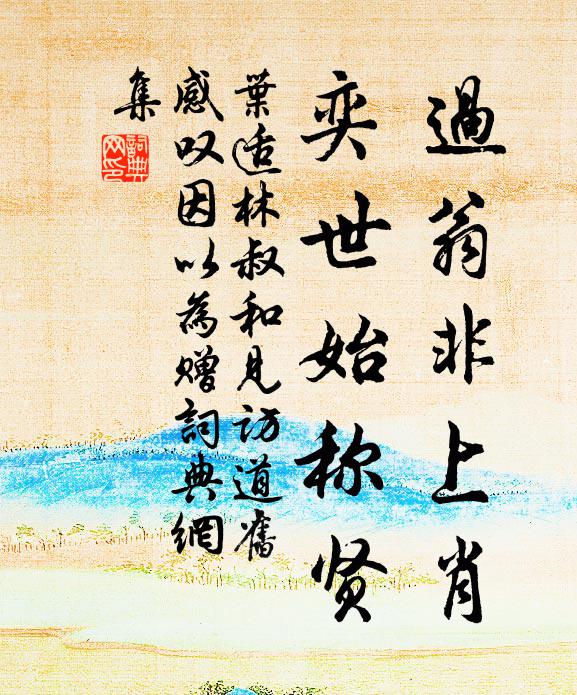 過翁非上肖
奕世始称贤
葉适林叔和見访道舊
感叹因以為赠詞典網
集
詞典
网印